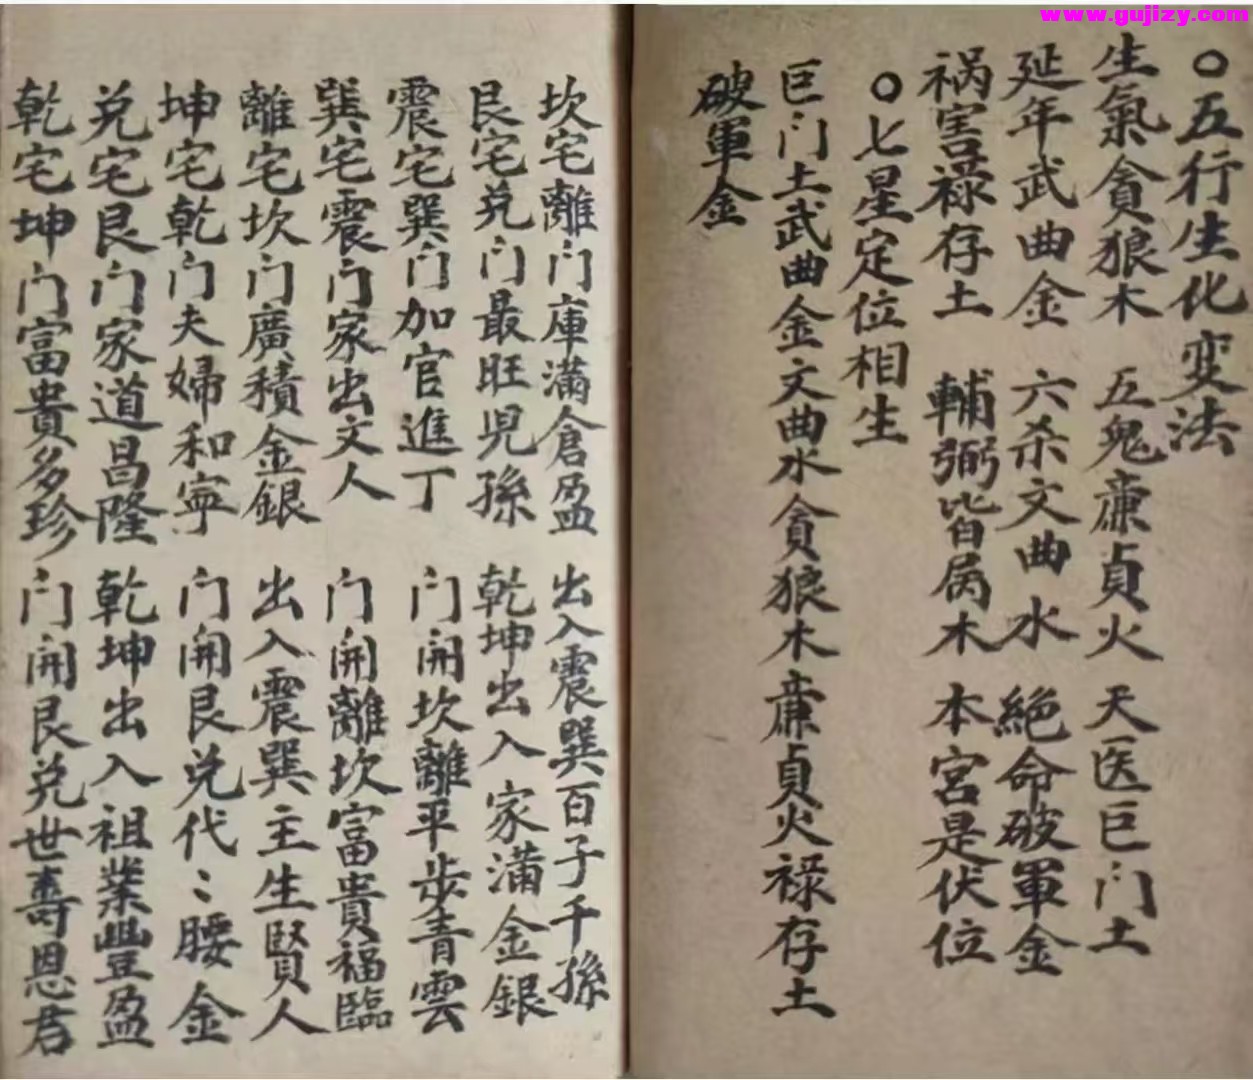 www.gujizy.com
○五行生化变法
生氣貪狼木 五鬼廉貞火 天医巨门土
延年武曲金 六杀文曲水 絕命破軍金
祸害禄存土 輔弼皆属木 本宮是伏位
○七星定位相生
巨门土武曲金文曲水貪狼木廉貞火禄存土
破軍金
坎宅離门庫滿倉盈 出入震巽百子千孫
艮宅兑门最旺児孫 乾坤出入家滿金銀
震宅巽门加官進丁 门開坎離平步青雲
巽宅震门家出文人 门開離坎富貴福臨
離宅坎门廣積金銀 出入震巽主生賢人
坤宅乾门夫婦和寧 门開艮兑代〻腰金
兑宅艮门家道昌隆 乾坤出入祖業豐盈
乾宅坤门富貴多珍 门開艮兑世壽恩君